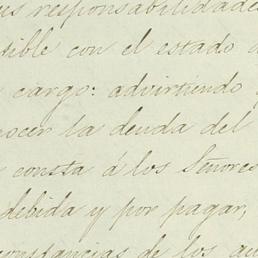 us responsabilidades
tible con el estado d
cargo: advirtiendo
nocer la deuda del
consta á los Señores
debida y por pagar,
constancias de los au